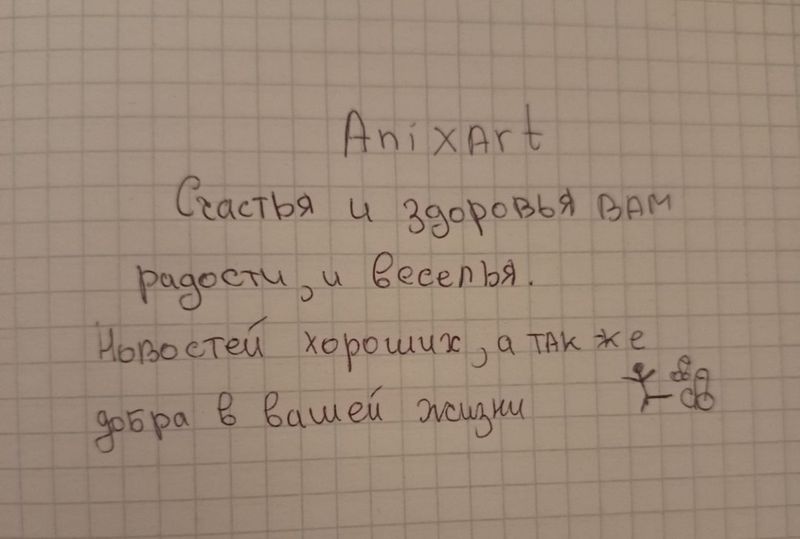 AnixArt
Счастья и здоровья вам
радости, и веселья.
Новостей хороших, а так же
добра в вашей жизни